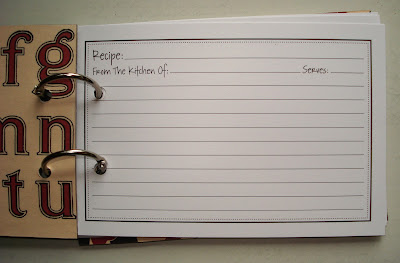 fg
nn
tu
Recipe:
From The Kitchen Of: Serves: